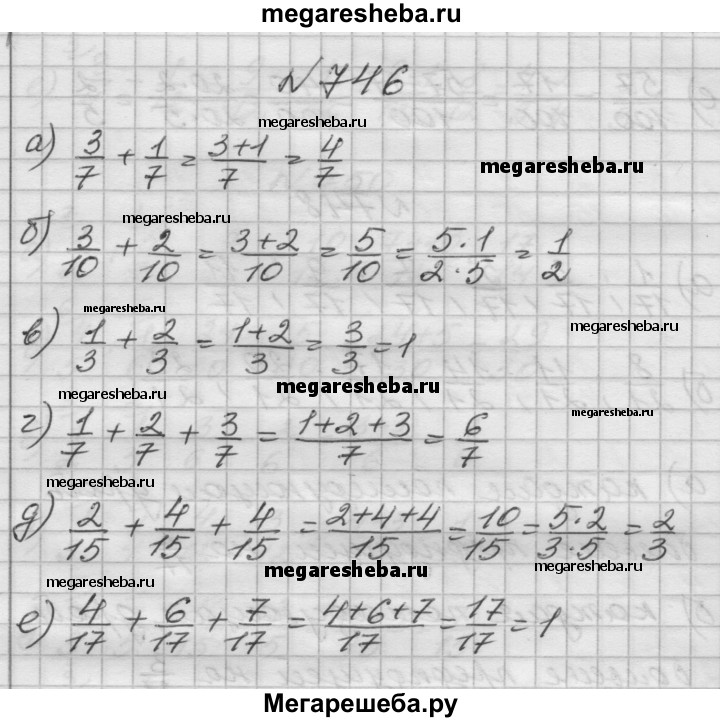 megaresheba.ru
№746
megaresheba.ru
а) 3/7 + 1/7 = (3+1)/7 = 4/7
megaresheba.ru
megaresheba.ru
б) 3/10 + 2/10 = (3+2)/10 = 5/10 = (5·1)/(2·5) = 1/2
megaresheba.ru
megaresheba.ru
в) 1/3 + 2/3 = (1+2)/3 = 3/3 = 1
megaresheba.ru
megaresheba.ru
megaresheba.ru
г) 1/7 + 2/7 + 3/7 = (1+2+3)/7 = 6/7
megaresheba.ru
д) 2/15 + 4/15 + 4/15 = (2+4+4)/15 = 10/15 = (5·2)/(3·5) = 2/3
megaresheba.ru
megaresheba.ru
megaresheba.ru
е) 4/17 + 6/17 + 7/17 = (4+6+7)/17 = 17/17 = 1
Мегарешеба.ру